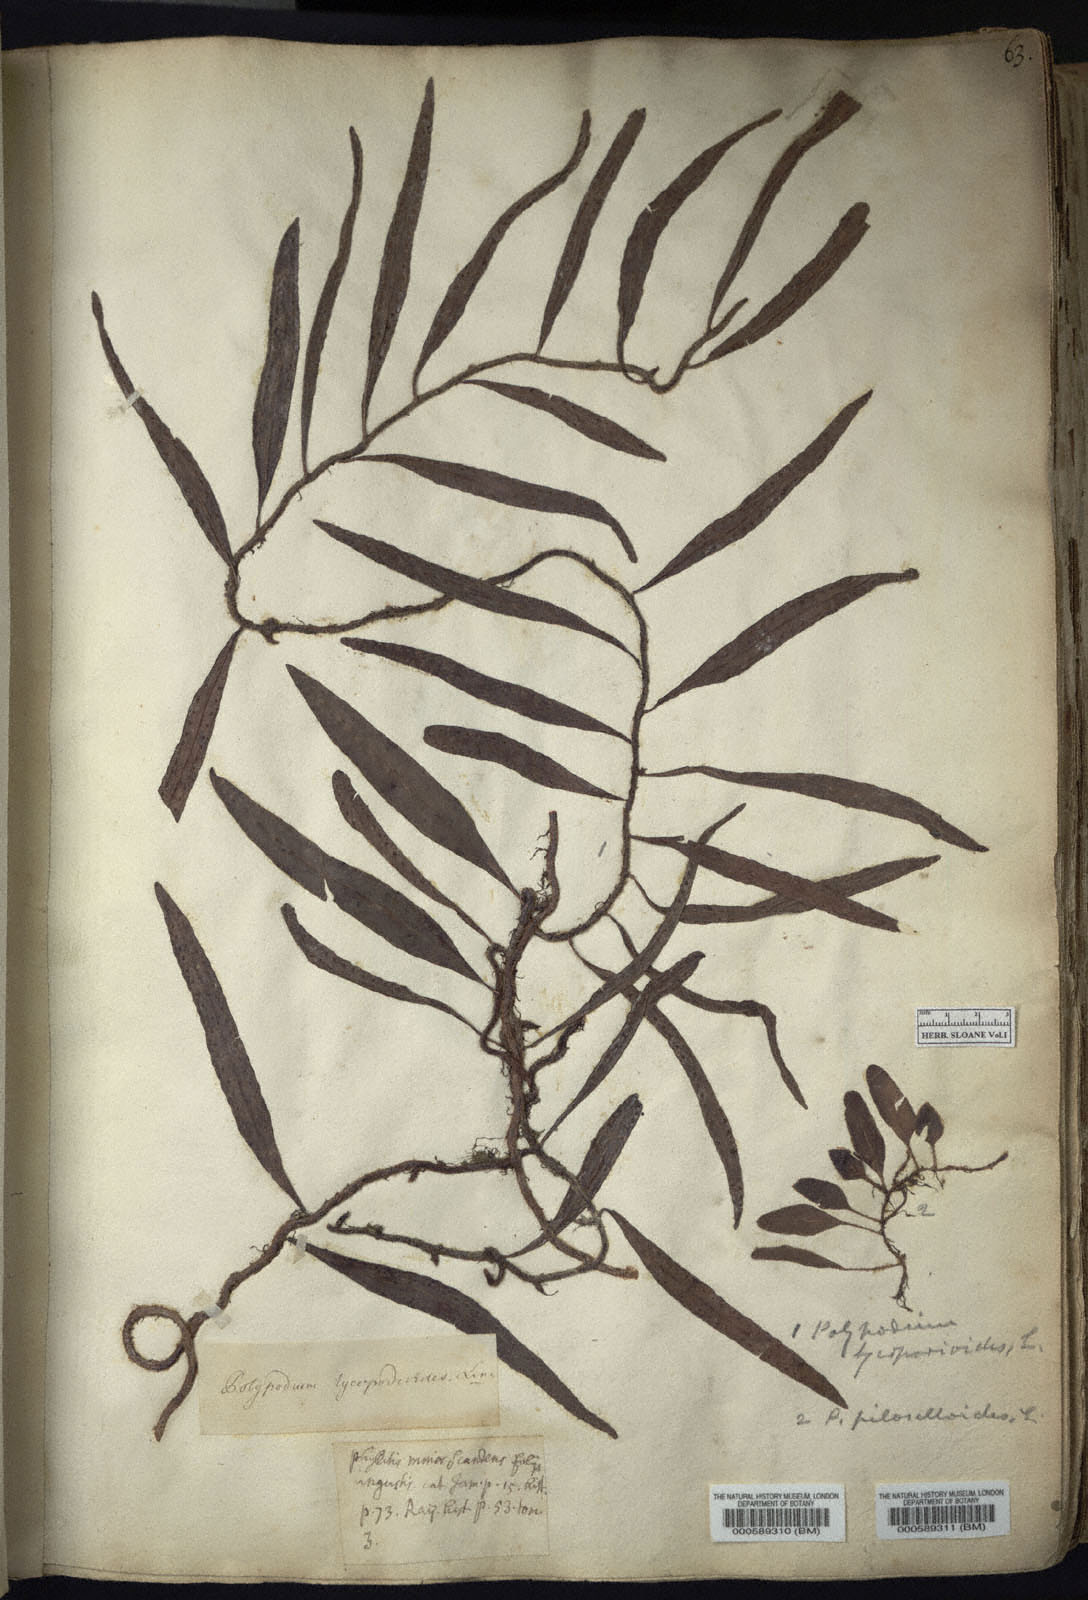 63.
mm 1 2 3
HERB. SLOANE Vol.1
1
2
1 Polypodium
lycopodioides, L.
2 P. piloselloides, L.
Polypodium lycopodioides. Linn
Phyllitis minor scandens folijs
angustis. cat. Jam. p. 15. hist.
p. 73. Raij. hist. p. 53. tom
3.
THE NATURAL HISTORY MUSEUM, LONDON
DEPARTMENT OF BOTANY
000589310 (BM)
THE NATURAL HISTORY MUSEUM, LONDON
DEPARTMENT OF BOTANY
000589311 (BM)